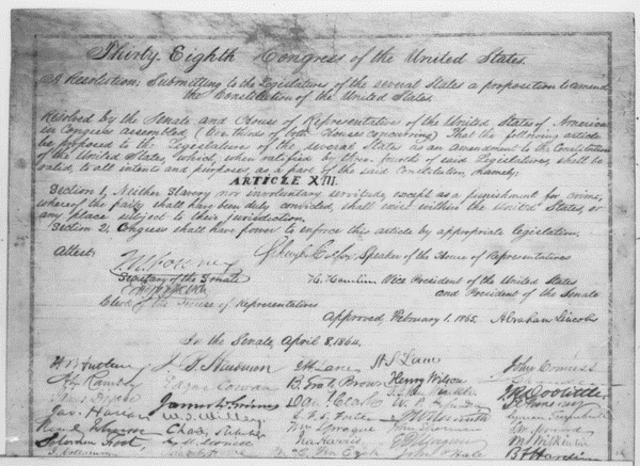 Thirty-Eighth Congress of the United States.
A Resolution; Submitting to the Legislatures of the several States a proposition to amend
the Constitution of the United States.
Resolved by the Senate and House of Representatives of the United States of America
in Congress assembled, (two thirds of both Houses concurring) That the following article
be proposed to the Legislatures of the several States as an amendment to the Constitution
of the United States, which, when ratified by three-fourths of said Legislatures, shall be
valid, to all intents and purposes, as a part of the said Constitution, namely:
ARTICLE XIII.
Section 1, Neither slavery nor involuntary servitude, except as a punishment for crime,
whereof the party shall have been duly convicted, shall exist within the United States, or
any place subject to their jurisdiction.
Section 2, Congress shall have power to enforce this article by appropriate legislation.
Attest:
Schuyler Colfax, Speaker of the House of Representatives
J. W. Forney
Secretary of the Senate
H. Hamlin Vice President of the United States
and President of the Senate
Clerk of the House of Representatives
Approved, February 1. 1865. Abraham Lincoln
In the Senate, April 8, 1864.
J. B. Henderson H S Lane John Conness
Edgar Cowan B. Gratz Brown Henry Wilson
James W. Grimes J R Doolittle
Jas. Harlan
Solomon Foot, Wm Sprague
Ira Harris John P Hale